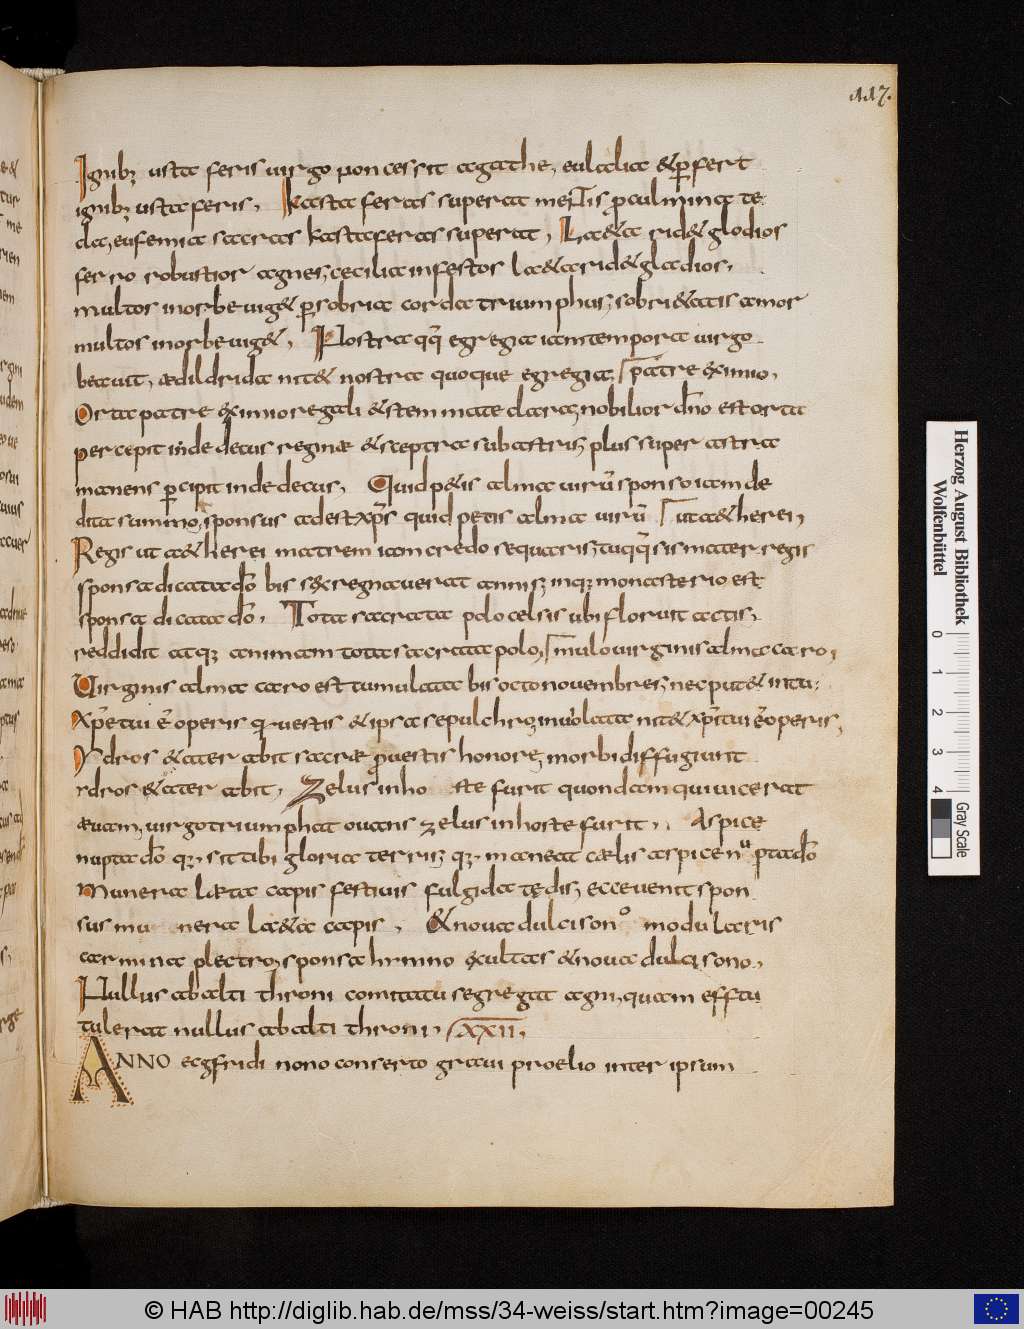 117.
Ignib; usta feris uirgo non cessit agathe, eulalia & p̱fert
ignib; usta feris, kasta feras superat mentis p culmina te
cla, eufemia sacras kasta feras superat, L&a rid& gladios
ferro robustior agnes, cecilia infestos l&a rid& gladios,
multos in orbe uig& p̱ sobria corda triumphus, sobri&atis amor
multos in orbe uig&, Nostra qq̄ egregia iam tempora uirgo
beauit, ædildrida nit& nostra quoque egregia, patre eximio,
Orta patre eximio regali & stemmate clara, nobilior dn̄o est orta
percepit inde decus reginæ & sceptra sub astris, plus super astra
manens p̱cipit inde decus, Quid p&is alma uirū sponso iam de
dita summo, sponsus adest xp̄s quid petis alma uirū ut &herei,
Regis ut &herei matrem iam credo sequaris, tu qq̄ sis mater regis
sponsa dicata dō bis sex regnauerat annis, inq; monasterio est
sponsa dicata dō, Tota sacrata polo celsis ubi floruit actis,
reddidit atq; animam tota sacrata polo, mulo uirginis alma caro,
Uirginis alma caro est tumulata bis octo nouembres, nec put& in tu,
xp̄e tui ē operis q̄ uestis & ipsa sepulchro, inuiolata nit& xp̄e tui ē operis,
Ydros & ater abit sacræ p uestis honore, morbi diffugiunt
ydros & ater abit, Zelus in ho ste furit quondam qui uicerat
æuam, uirgo triumphat ouans zelus in hoste furit, Aspice
nupta dō q;, sit tibi gloria terris, q; maneat cælis aspice nupta dō
Munera læta capis festiuis fulgida tędis, ecce uenit spon
sus mu nera l&a capis, & noua dulcisono modularis
carmina plectro, sponsa hymno exultas & noua dulci sono,
Nullus ab alti throni comitatu segregat agni, quam effctu
tulerat nullus ab alti throni, XXII,
ANNO ecgfridi nono conserto graui proelio inter ipsum
Herzog August Bibliothek
Wolfenbüttel
0 1 2 3 4
Gray Scale
© HAB http://diglib.hab.de/mss/34-weiss/start.htm?image=00245